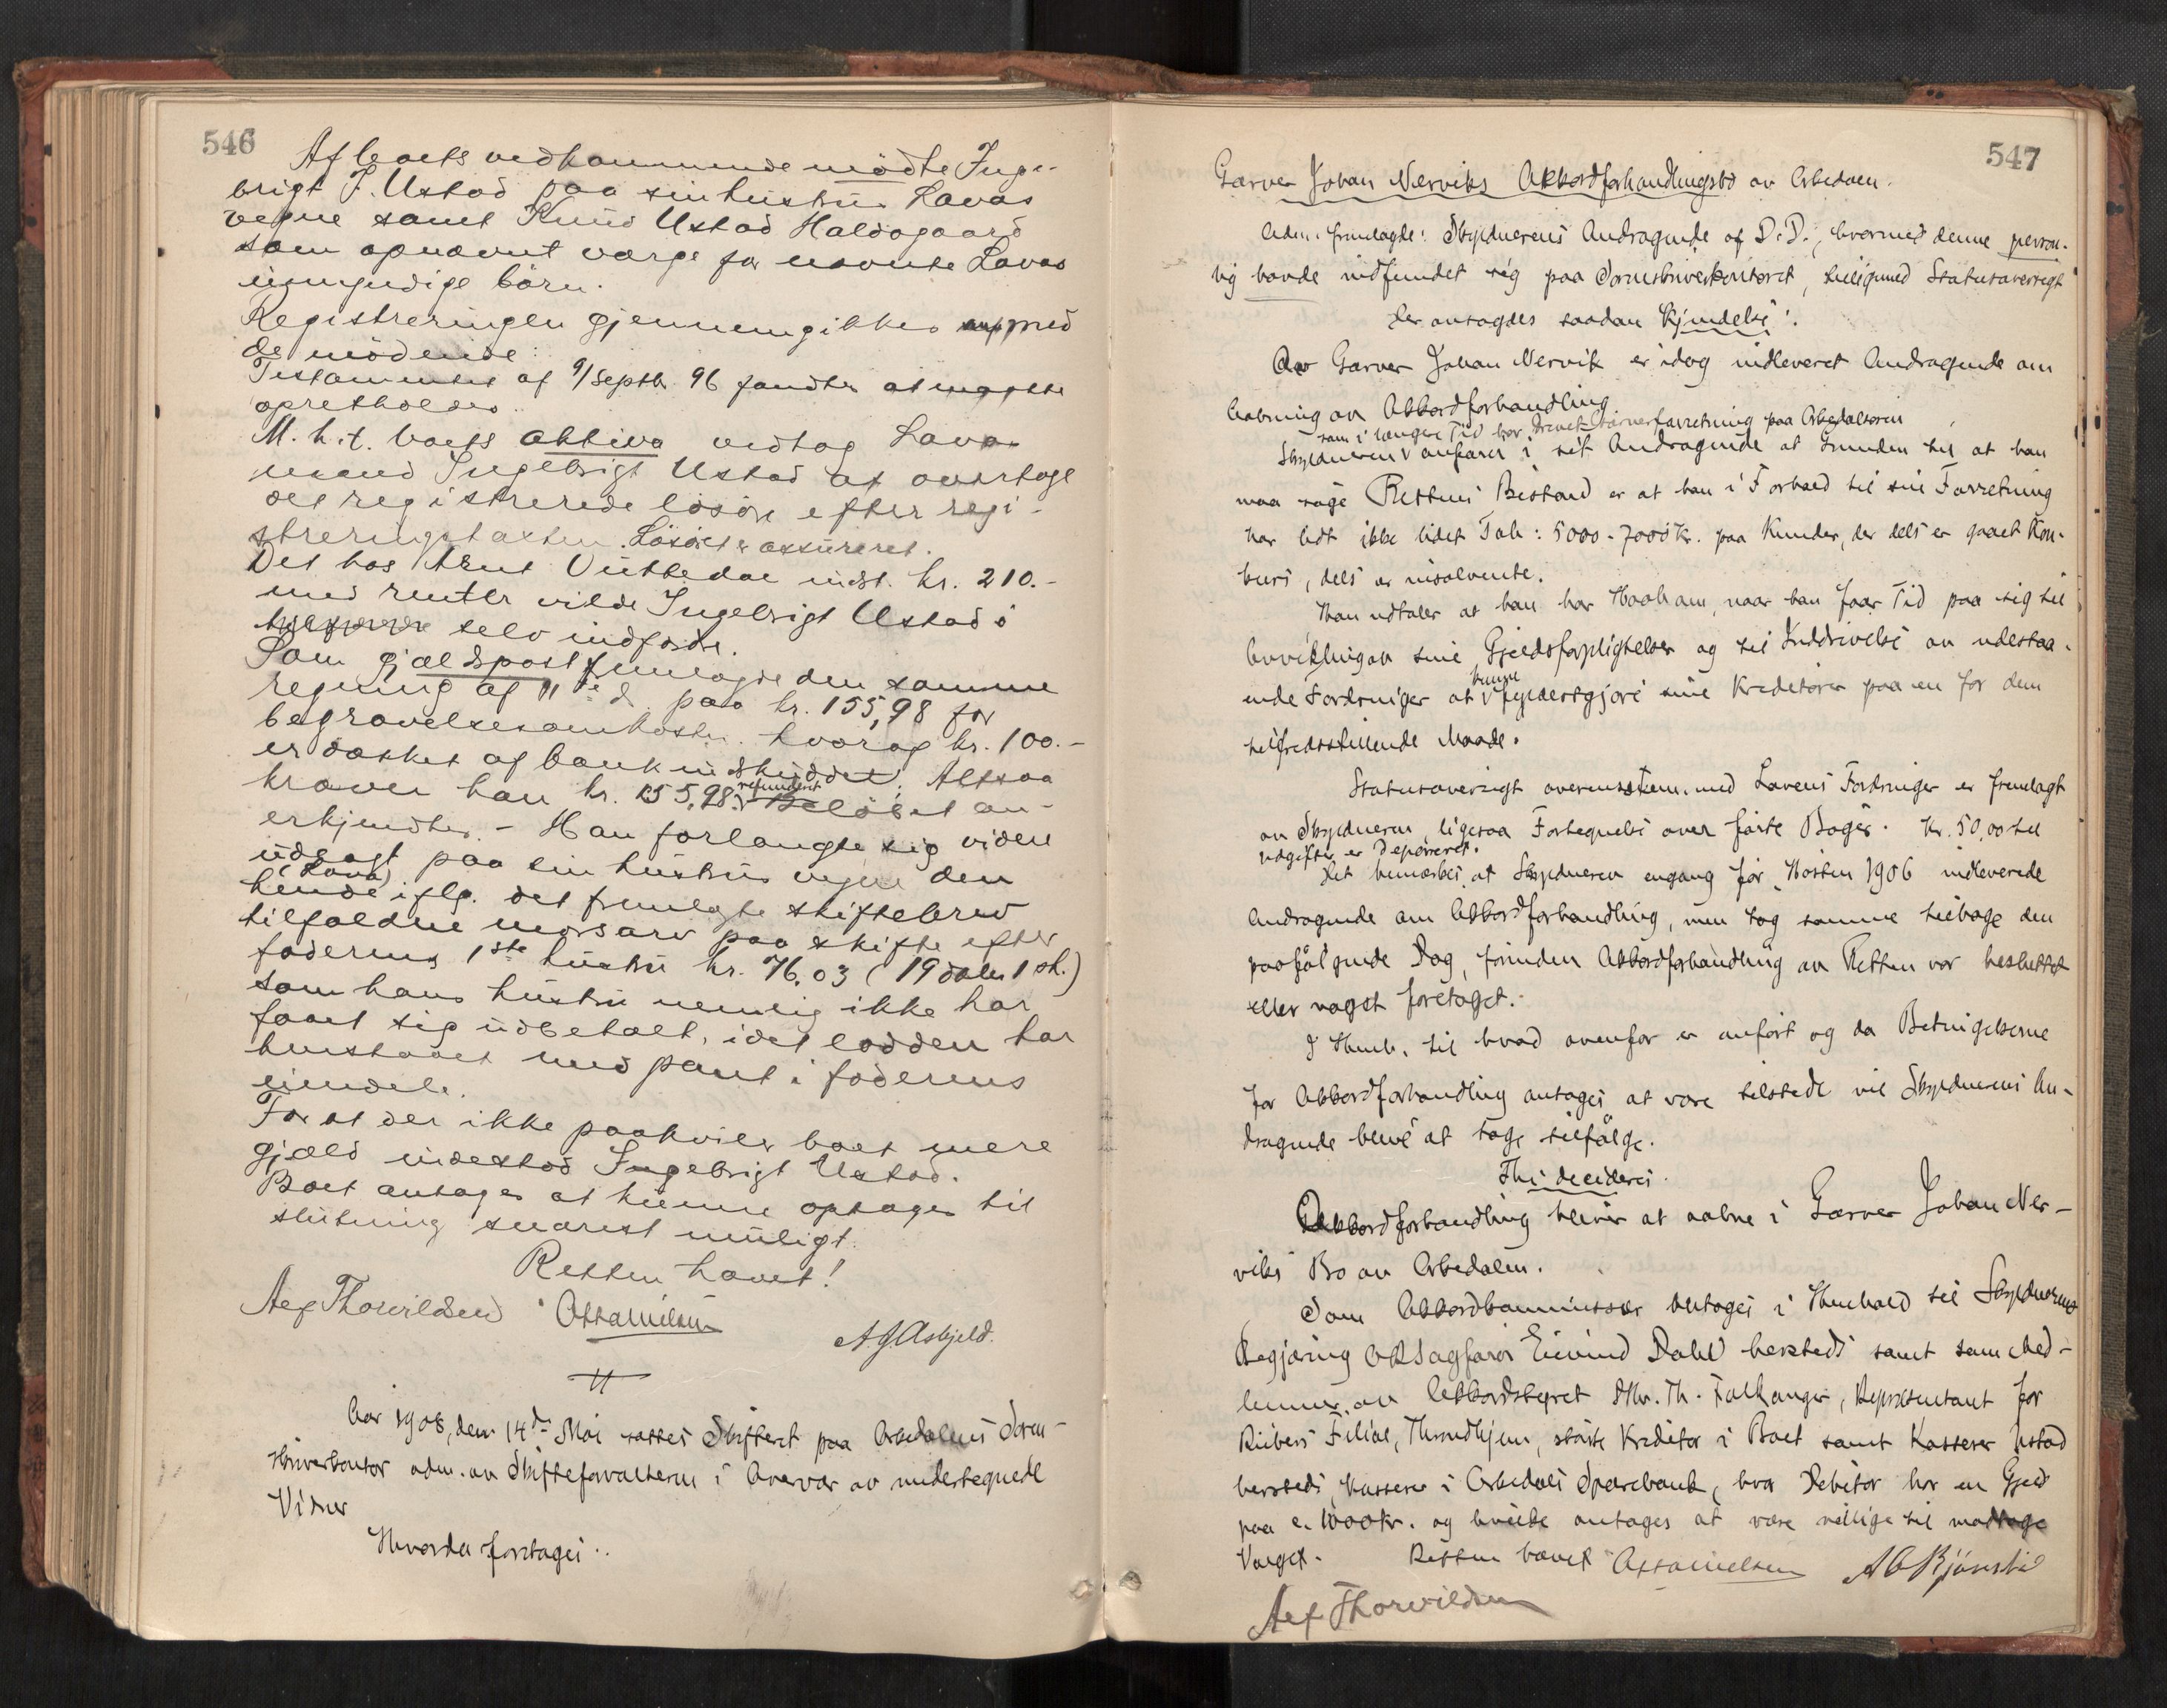 546
Af boets vedkommende mödte Inge-
brigt J. Ustad paa sin hustru Lavas
vegne samt Knud Ustad Haldogaard
som opnævnt værge for nævnte Lavas
umyndige börn.
Registreringen gjennemgikkes med
de mödende:
Testamentet af 9/Septbr. 96 fandtes at maatte
opretholdes.
M. h. t. boets aktiva vedtog Lavas
mand Ingebrigt Ustad at overtage
det registrerede lösöre efter regi-
streringstaxten. Lösöret er assureret.
Det hos Arnt indst. kr. 210.-
med renter vilde Ingebrigt Ustad
selv indfordre.
Som gjældspost fremlagde den samme
regning af 11te ds. paa kr. 155,98 for
begravelsesomkostn. hvorag kr. 100.-
er dækket af bankindskuddet. Altsaa
kræver han kr. 55,98 refunderet Belöbet an-
erkjendtes. - Han forlangte sig videre
udlagt paa sin hustrus vegne den
hende (Lava) iflg. det fremlagte skiftebrev
tilfaldne morsarv paa skifte efter
faderens 1ste hustru kr. 76.03 (19 daler 1 sk.)
som hans hustru nemlig ikke har
faaet sig udbetalt, idet lodden har
henstaaet med pant i faderens
eiendele.
For at der ikke paahviler boet mere
gjæld indestod Ingebrigt Ustad.
Boet antages at kunne optages til
slutning snarest muligt.
Retten hævet!
Alf Thorvildsen A. J. Asbjeld.
Aar 1908, den 14de Mai sattes Skifteret paa Orkedalens Soren-
skriverkontor adm. av Skifteforvalteren i Overvær av undertegnede
Vidner
Hvorda foretages..
547
Garver Johan Nerviks Akkordforhandlingsbo av Orkedalen.
Adm. fremlagde: Skyldnerens Andragende af D.D., hvormed denne person-
lig havde indfundet sig paa Sorenskriverkontoret, tilligemed Statusoversigt
Der avsagdes saadan Kjendelse:
Av Garver Johan Nervik er idag indleveret Andragende om
Aabning av Akkordforhandling
som i længere Tid har drevet Garverforretning paa Orkedalsøren
Skyldneren v anfører i sit Andragende at Grunden til at han
maa søge Rettens Bistand er at han i Forhold til sin Forretning
har lidt ikke lidet Tab: 5000-7000 Kr. paa Kunder, der dels er gaaet Kon-
kurs, dels er insolvente.
Han udtaler at han har Haab om, naar han faar Tid paa sig til
Avvikling av sine Gjældsforpligtelser og til Inddrivelse av udestaa-
kunne
ende Fordringer at v fyldestgjøre sine Kreditorer paa en for dem
tilfredsstillende Maade.
Statusoversigt overensstem. med Lovens Fordringer er fremlagt
av Skyldneren, ligesaa Fortegnelse over førte Bøger. Kr. 50,00 til
udgifter er deponeret.
Det bemærkes, at Skyldneren engang før, Høsten 1906 indleverede
Andragende om Akkordforhandling, men tog samme tilbage den
paafølgende Dag, forinden Akkordforhandling av Retten var besluttet
eller noget foretaget.
I Henh. til hvad ovenfor er anført og da Betingelserne
for Akkordforhandling antages at være tilstede vil Skyldnerens An-
dragende blive at tage tilfølge.
Thi decideres:
Akkordforhandling bliver at aabne i Garver Johan Ner-
viks Bo av Orkedalen.
Som Akkordkommissær antages i Henhold til Skyldnerens
Begjæring ORSagfører Eivind Dahl hersteds samt som Med-
lemmer av Akkordstyret Hr. Th. Falkanger, Repræsentant for
Riebers Filial, Throndhjem, største Kreditor i Boet samt Kasserer Ustad
hersteds, Kasserer i Orkedals Sparebank, hvor Debitor har en Gjæld
paa c. 1000 Kr. og hvilke antages at være villige til modtage
Valget. Retten hævet
Alf Thorvildsen